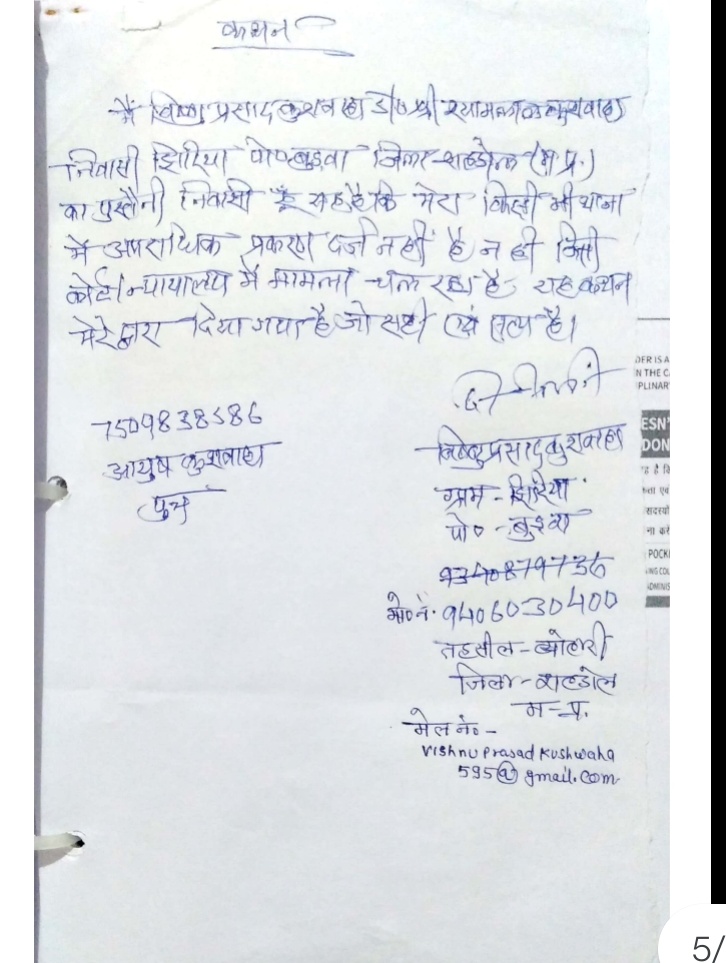 कथन
मैं विष्णु प्रसाद कुशवाहा S/o श्री श्यामलाल कुशवाहा
निवासी झिरिया पो० बुड़वा जिला-शहडोल (म.प्र.)
का पुस्तैनी निवासी हूँ यह है कि मेरा किसी भी थाना
में अपराधिक प्रकरण दर्ज नहीं है न ही किसी
कोर्ट/न्यायालय में मामला चल रहा है, यह कथन
मेरे द्वारा दिया गया है जो सही एवं सत्य है।
7509838586
आयुष कुशवाहा
पुत्र
विष्णु प्रसाद कुशवाहा
ग्राम - झिरिया
पो० - बुड़वा
9340879736
मो० नं. 9406030400
तहसील - ब्योहारी
जिला - शहडोल
म - प्र.
मेल नं० -
Vishnu Prasad Kushwaha
595@gmail.com
DER IS A
N THE CA
PLINAR
ESN'
DON
POCK
5/